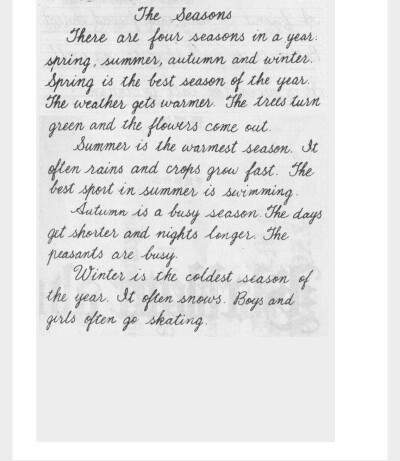 The Seasons
There are four seasons in a year:
spring, summer, autumn and winter.
Spring is the best season of the year.
The weather gets warmer. The trees turn
green and the flowers come out.
Summer is the warmest season. It
often rains and crops grow fast. The
best sport in summer is swimming.
Autumn is a busy season. The days
get shorter and nights longer. The
peasants are busy.
Winter is the coldest season of
the year. It often snows. Boys and
girls often go skating.